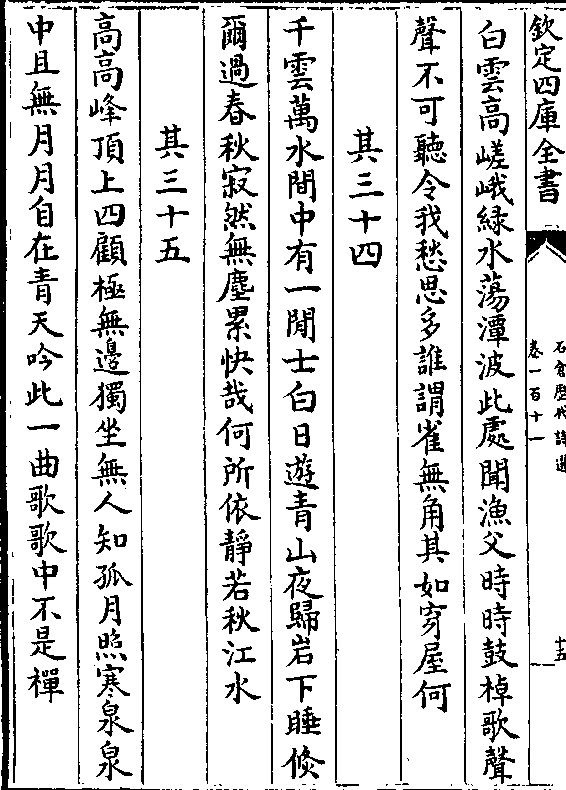 欽定四庫全書
石倉歷代詩選
卷一百十一
十五
白雲高嵯峨緑水蕩潭波此處聞漁父時時鼓棹歌聲
聲不可聽令我愁思多誰謂雀無角其如穿屋何
其三十四
千雲萬水間中有一閒士白日遊青山夜歸岩下睡倐
爾過春秋寂然無塵累快哉何所依靜若秋江水
其三十五
高高峰頂上四顧極無邊獨坐無人知孤月照寒泉泉
中且無月月自在青天吟此一曲歌歌中不是禪